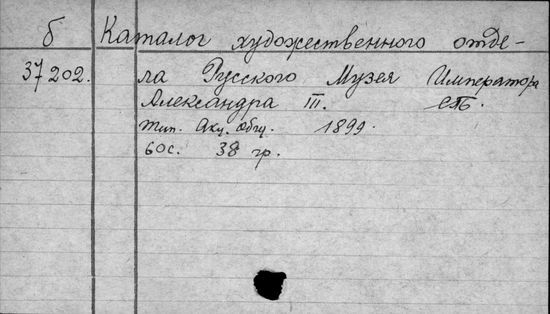 б Каталог художественного отде-
37202. ла Русского Музея Императора
Александра III. СПБ.
Тип. Акц. Общ. 1899.
60с. 38 гр.